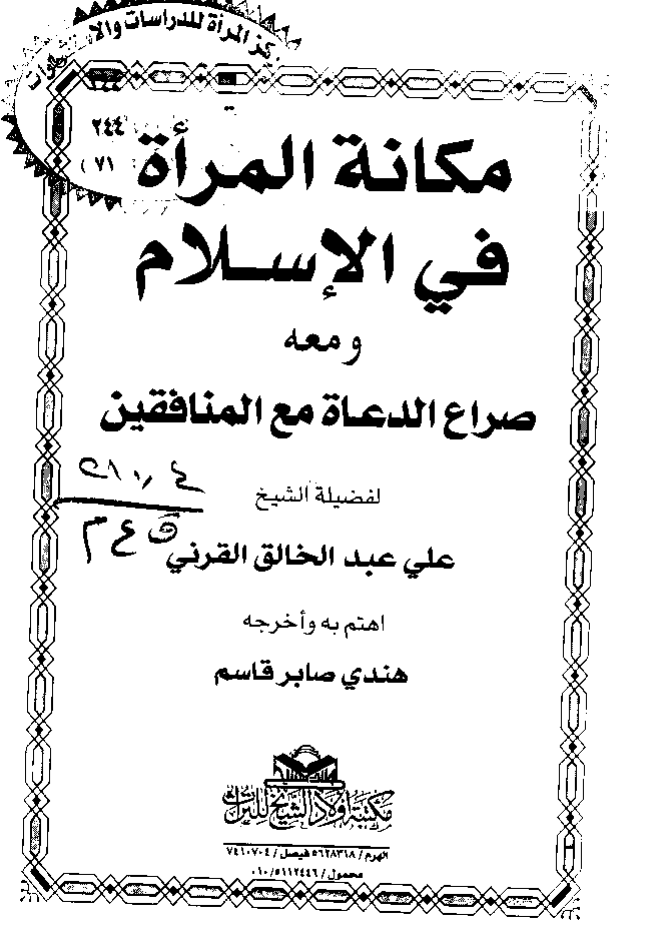 مركز المرأة للدراسات والاستشارات
٢٤٤
(٧١
مكانة المرأة
في الإسلام
ومعه
صراع الدعاة مع المنافقين
لفضيلة الشيخ
علي عبد الخالق القرني
اهتم به وأخرجه
هندي صابر قاسم
مكتبة أولاد الشيخ للتراث
الهرم / ٥٦٢٨٣١٨ فيصل / ٧٤٦٠٧٠٤
محمول / ٠١٠/٥١١٢٤٤٦